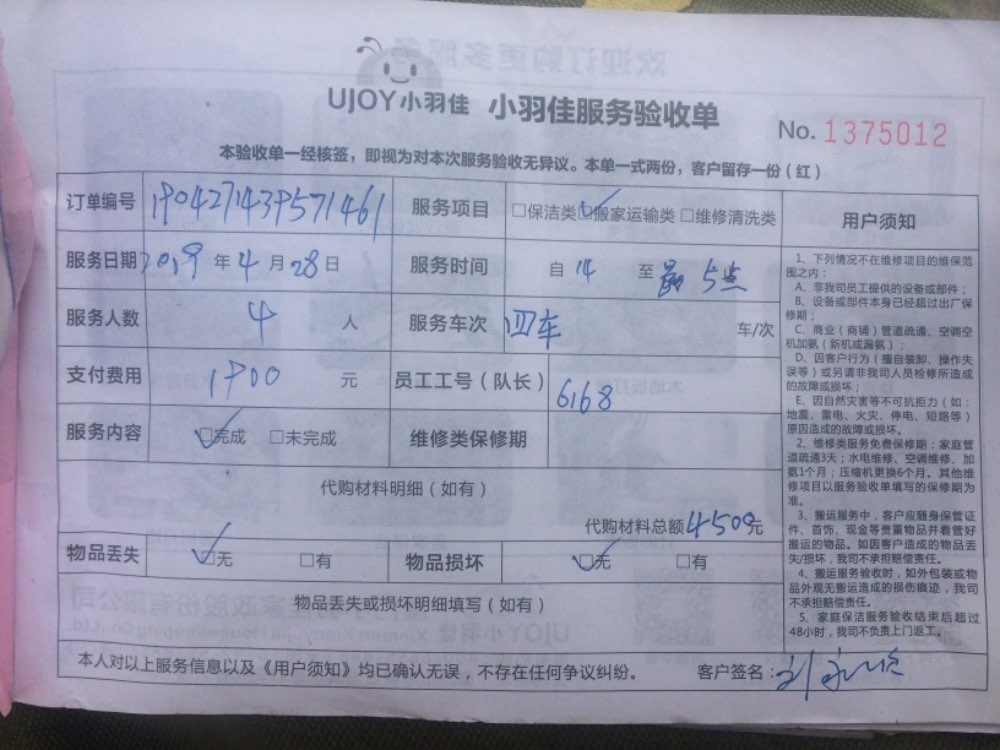 UJOY小羽佳 小羽佳服务验收单
No. 1375012
本验收单一经核签，即视为对本次服务验收无异议。本单一式两份，客户留存一份（红）
订单编号 190427143957146 服务项目 □保洁类 □搬家运输类 □维修清洗类
服务日期 2019 年 4 月 28 日 服务时间 自 14 至 5点
服务人数 4 人 服务车次 四车 车/次
支付费用 1900 元 员工工号（队长） 6168
服务内容 □完成 □未完成 维修类保修期
代购材料明细（如有）
代购材料总额 4500 元
物品丢失 □无 □有 物品损坏 □无 □有
物品丢失或损坏明细填写（如有）
本人对以上服务信息以及《用户须知》均已确认无误，不存在任何争议纠纷。 客户签名：
用户须知
1、下列情况不在维修项目的维保范
围之内：
A、非我司员工提供的设备或部件；
B、设备或部件本身已经超过出厂保
修期；
C、商业（商铺）管道疏通、空调空
机加氨（新机或漏氨）；
D、因客户行为（擅自装卸、操作失
误等）或另请非我司人员检修所造成
的故障或损坏；
E、因自然灾害等不可抗拒力（如：
地震、雷电、火灾、停电、短路等）
原因造成的故障或损坏。
2、维修类服务免费保修期：家庭管
道疏通3天；水电维修、空调维修、加
氨1个月；压缩机更换6个月。其他维
修项目以服务验收单填写的保修期为
准。
3、搬运服务中，客户应随身保管证
件、首饰、现金等贵重物品并看管好
搬运的物品。如因客户造成的物品丢
失/损坏，我司不承担赔偿责任。
4、搬运服务验收时，如外包装或物
品外观无搬运造成的损伤痕迹，我司
不承担赔偿责任。
5、家庭保洁服务验收结束后超过
48小时，我司不负责上门返工。